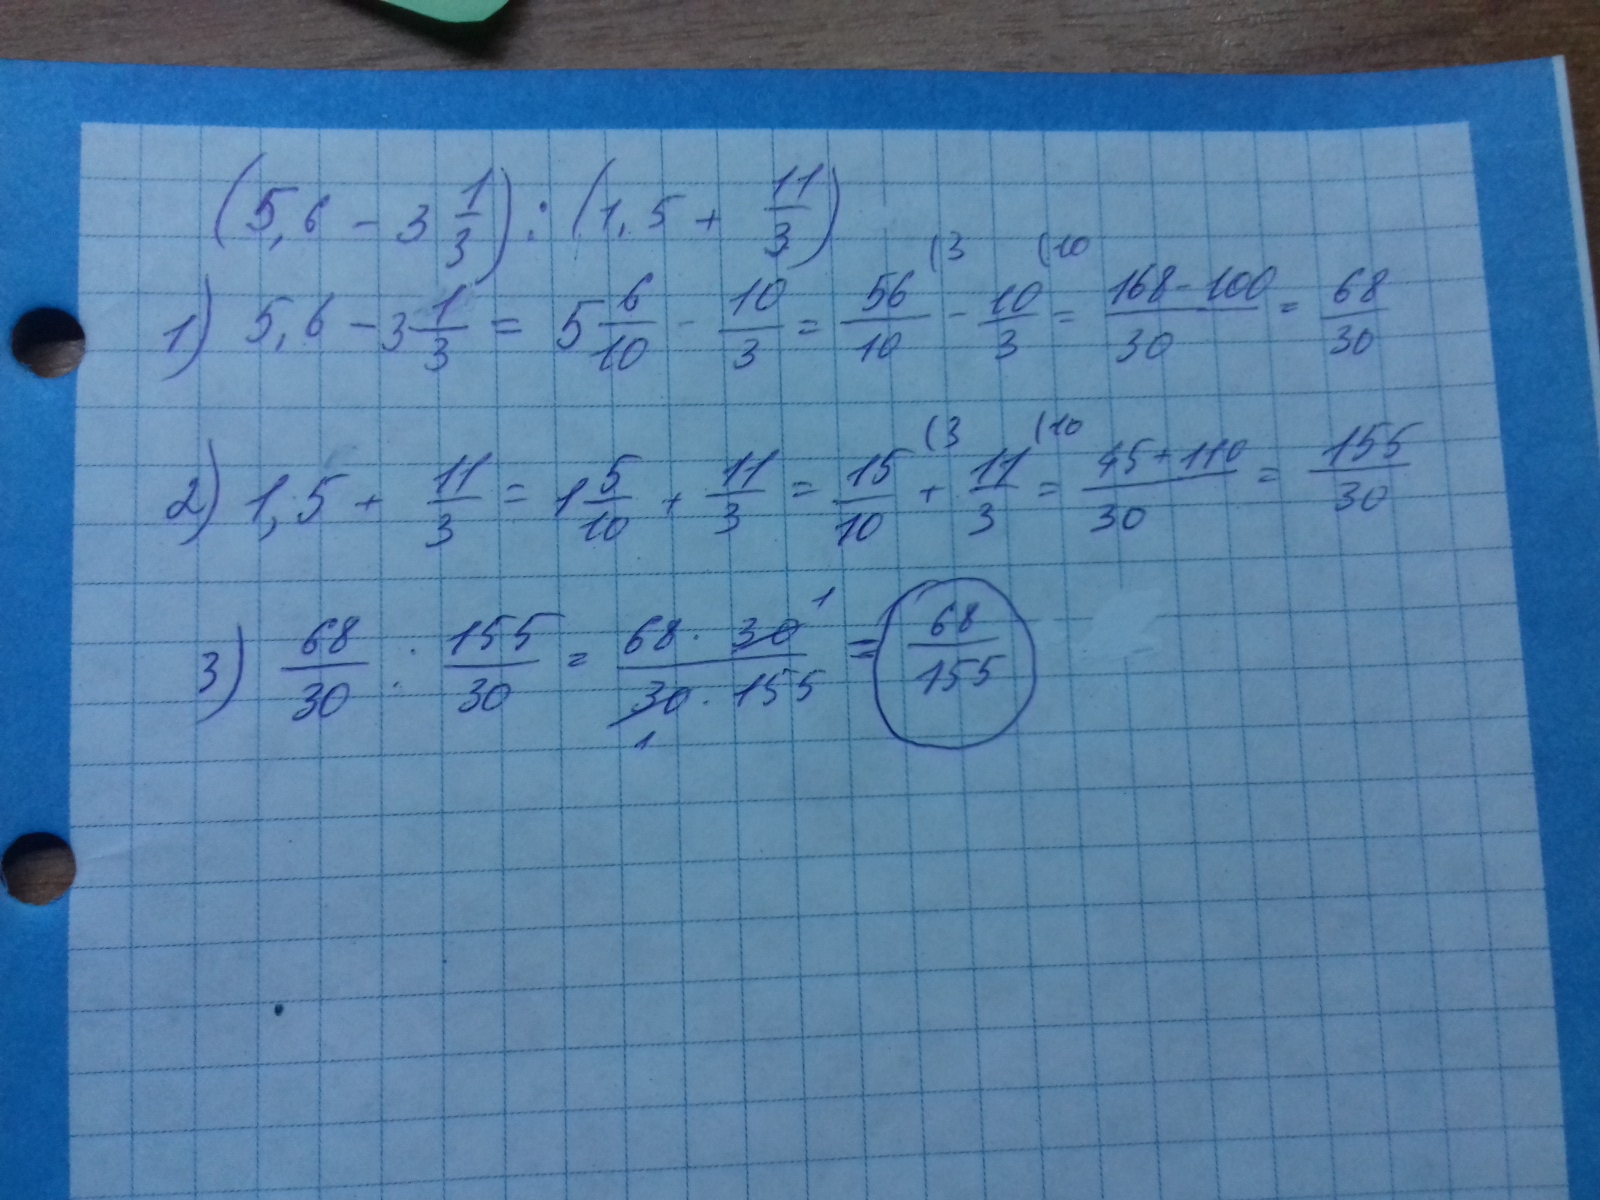 (5,6 - 3 1/3) : (1,5 + 11/3)
1) 5,6 - 3 1/3 = 5 6/10 - 10/3 = 56/10 (3 - 10/3 (10 = 168-100/30 = 68/30
2) 1,5 + 11/3 = 1 5/10 + 11/3 = 15/10 (3 + 11/3 (10 = 45+110/30 = 155/30
3) 68/30 : 155/30 = 68 · 30 1/30 1 · 155 = 68/155